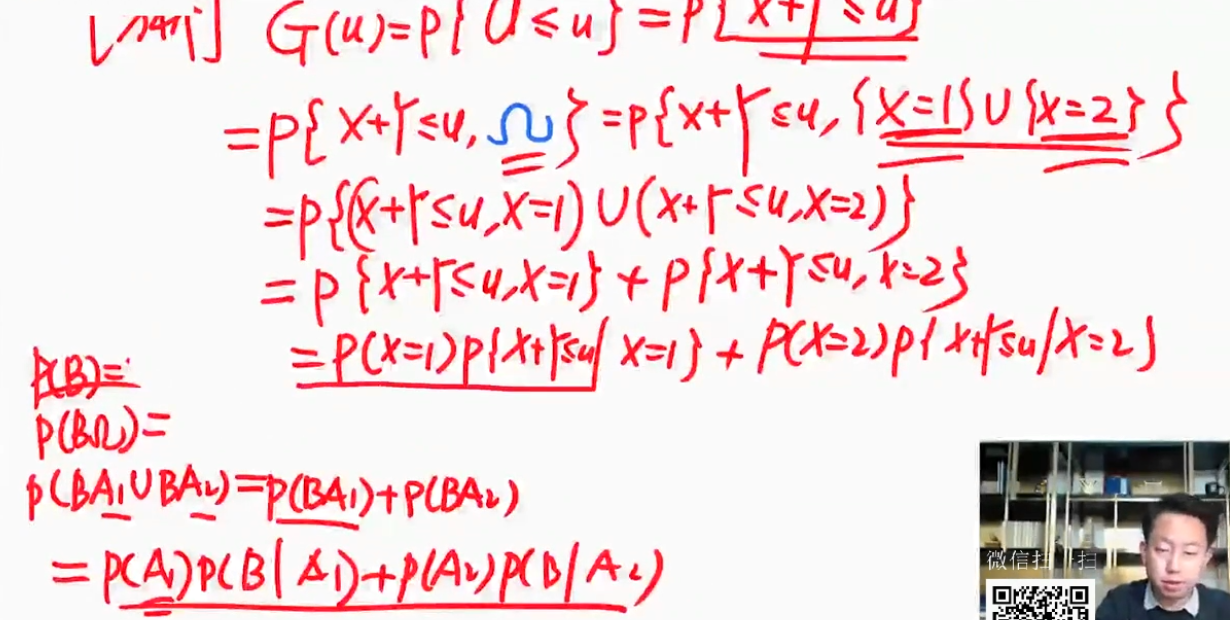 G(u)=P{U≤u}=P{X+Y≤u}
=P{X+Y≤u,Ω}=P{X+Y≤u,{X=1}∪{X=2}}
=P{(X+Y≤u,X=1)∪(X+Y≤u,X=2)}
=P{X+Y≤u,X=1}+P{X+Y≤u,X=2}
=P(X=1)P{X+Y≤u/X=1}+P(X=2)P{X+Y≤u/X=2}
P(B)=
P(BΩ)=
P(BA₁∪BA₂)=P(BA₁)+P(BA₂)
=P(A₁)P(B|A₁)+P(A₂)P(B/A₂)
微信扫一扫